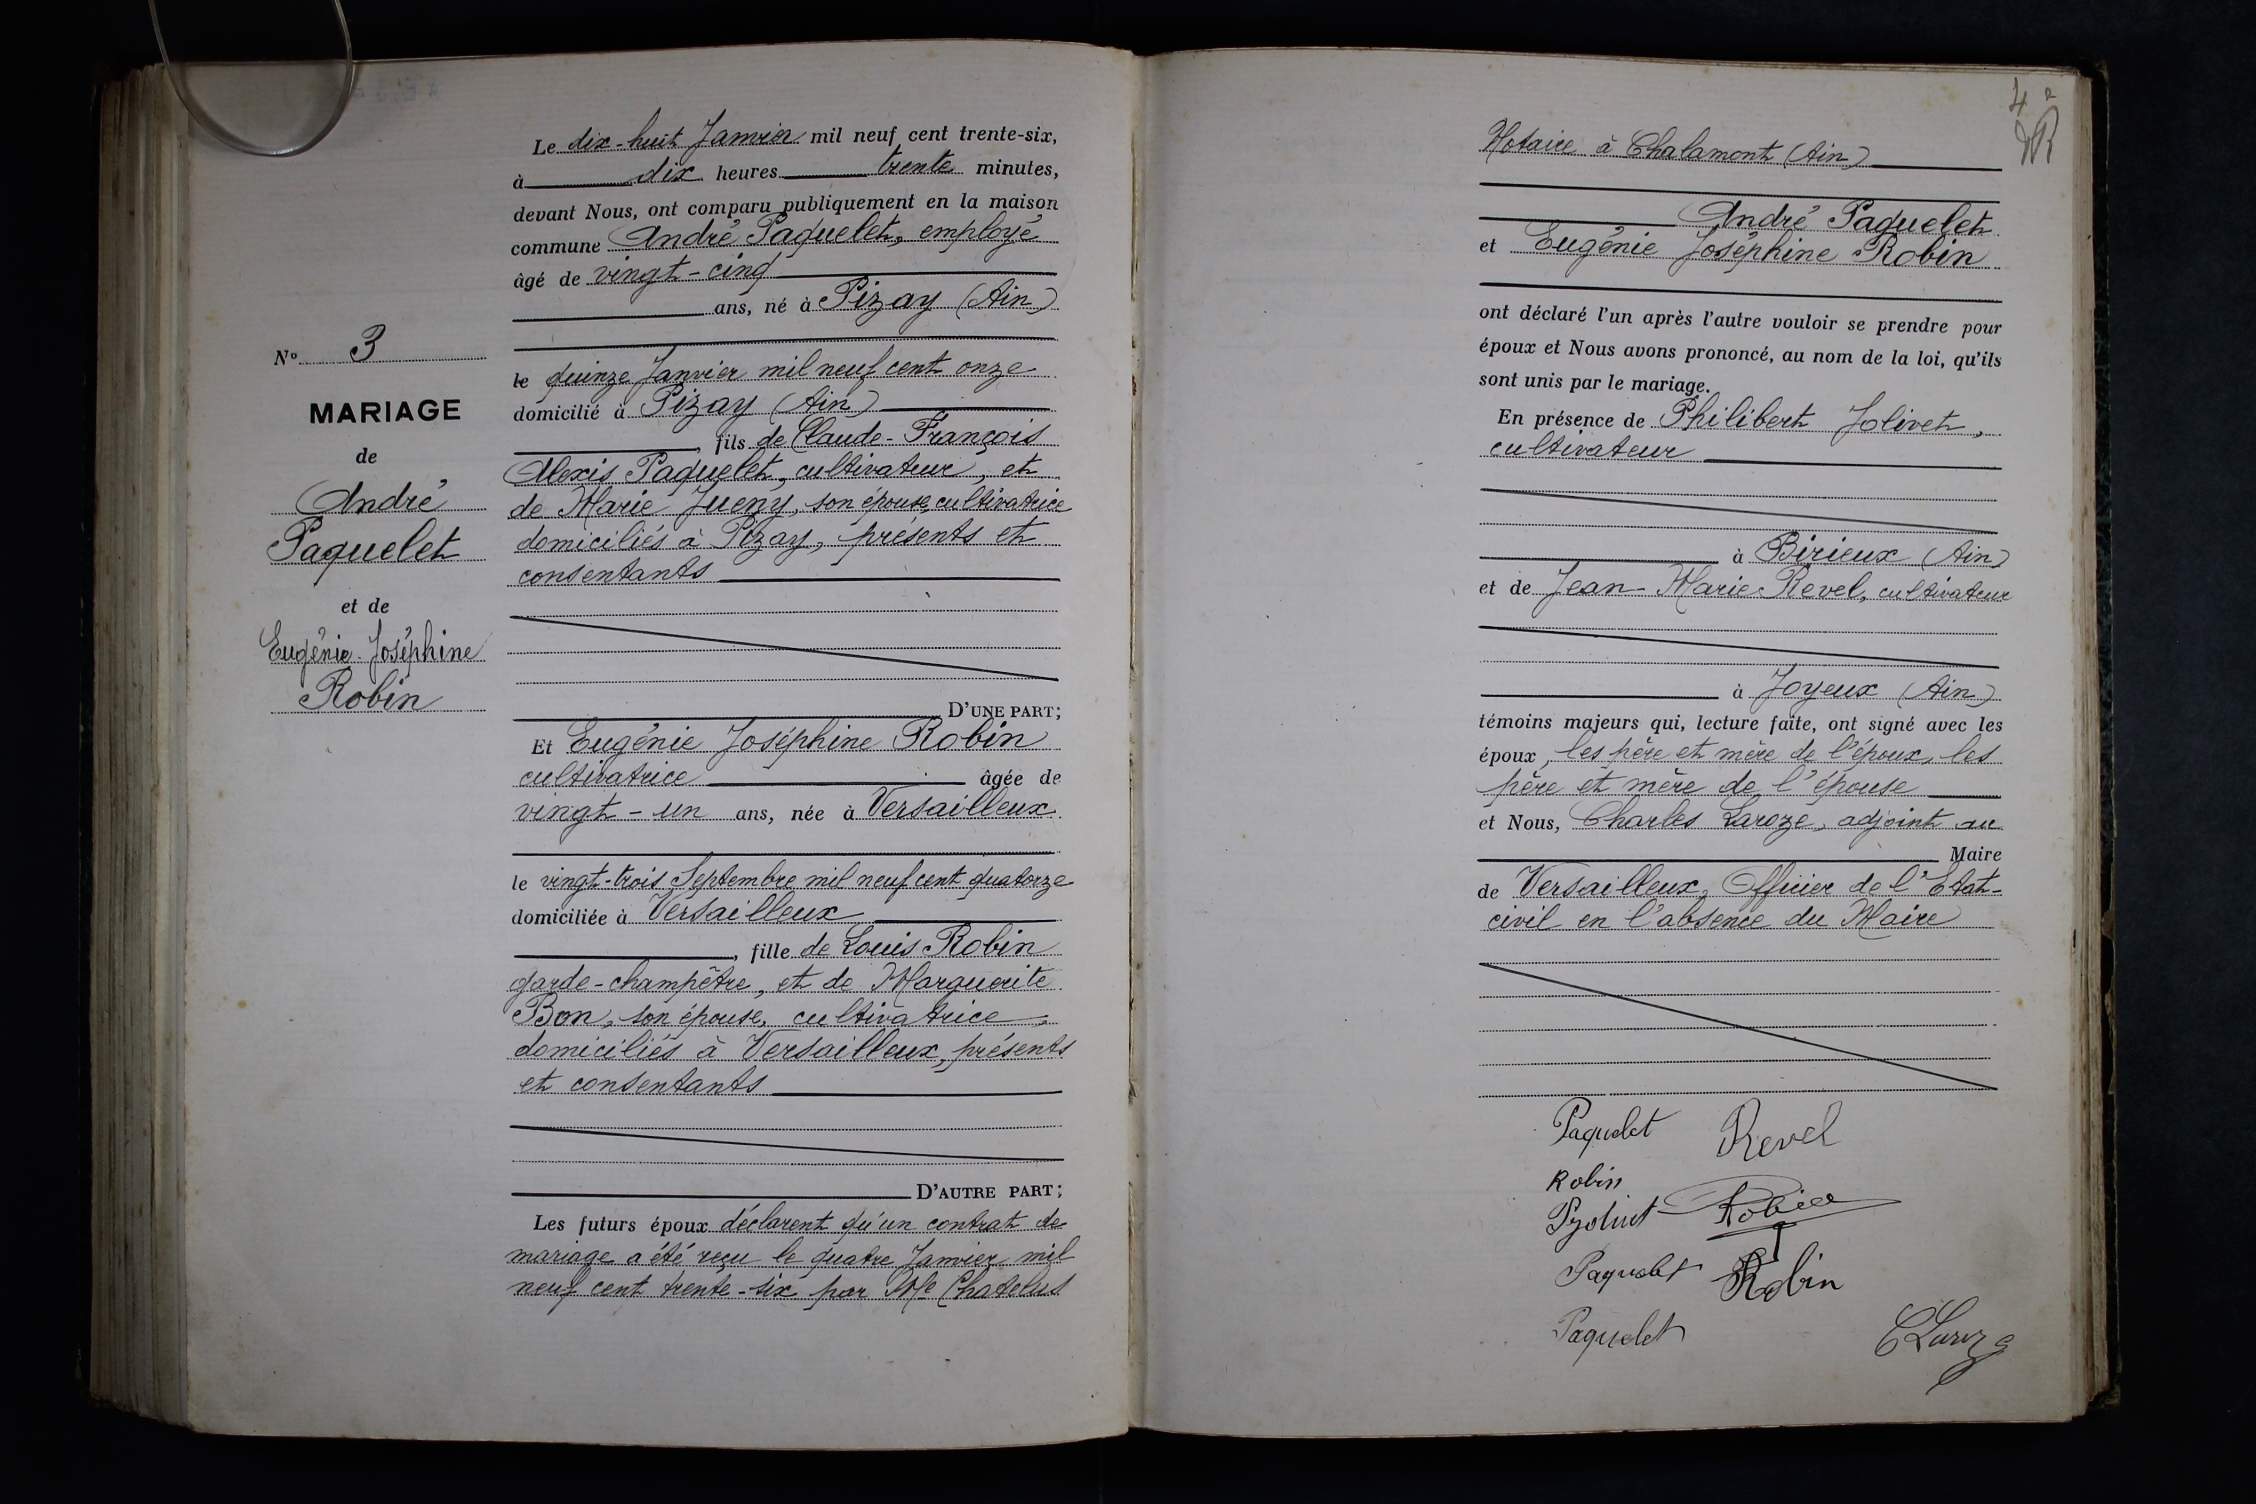 N° 3
MARIAGE
de
André
Paquelet
et de
Eugénie Joséphine
Robin
Le dix-huit Janvier mil neuf cent trente-six,
à dix heures trente minutes,
devant Nous, ont comparu publiquement en la maison
commune André Paquelet, employé
âgé de vingt-cinq
ans, né à Pizay (Ain)
le quinze Janvier mil neuf cent onze
domicilié à Pizay (Ain)
, fils de Claude-François
Alexis Paquelet, cultivateur, et
de Marie Jueny, son épouse, cultivatrice
domiciliés à Pizay, présents et
consentants
D'UNE PART;
Et Eugénie Joséphine Robin
cultivatrice âgée de
vingt-un ans, née à Versailleux
le vingt-trois Septembre mil neuf cent quatorze
domiciliée à Versailleux
, fille de Louis Robin
garde-champêtre, et de Marguerite
Bon, son épouse, cultivatrice,
domiciliés à Versailleux, présents
et consentants
D'AUTRE PART;
Les futurs époux déclarent qu'un contrat de
mariage a été reçu le quatre Janvier mil
neuf cent trente-six par Me Chatelus
4
Notaire à Chalamont (Ain)
André Paquelet
et Eugénie Joséphine Robin
ont déclaré l'un après l'autre vouloir se prendre pour
époux et Nous avons prononcé, au nom de la loi, qu'ils
sont unis par le mariage.
En présence de Philibert Jolivet,
cultivateur
à Birieux (Ain)
et de Jean-Marie Revel, cultivateur
à Joyeux (Ain)
témoins majeurs qui, lecture faite, ont signé avec les
époux, les père et mère de l'époux, les
père et mère de l'épouse
et Nous, Charles Laroze, adjoint au
Maire
de Versailleux, Officier de l'Etat-
civil en l'absence du Maire
Paquelet Revel
Robin
Robin
Paquelet Robin
Paquelet